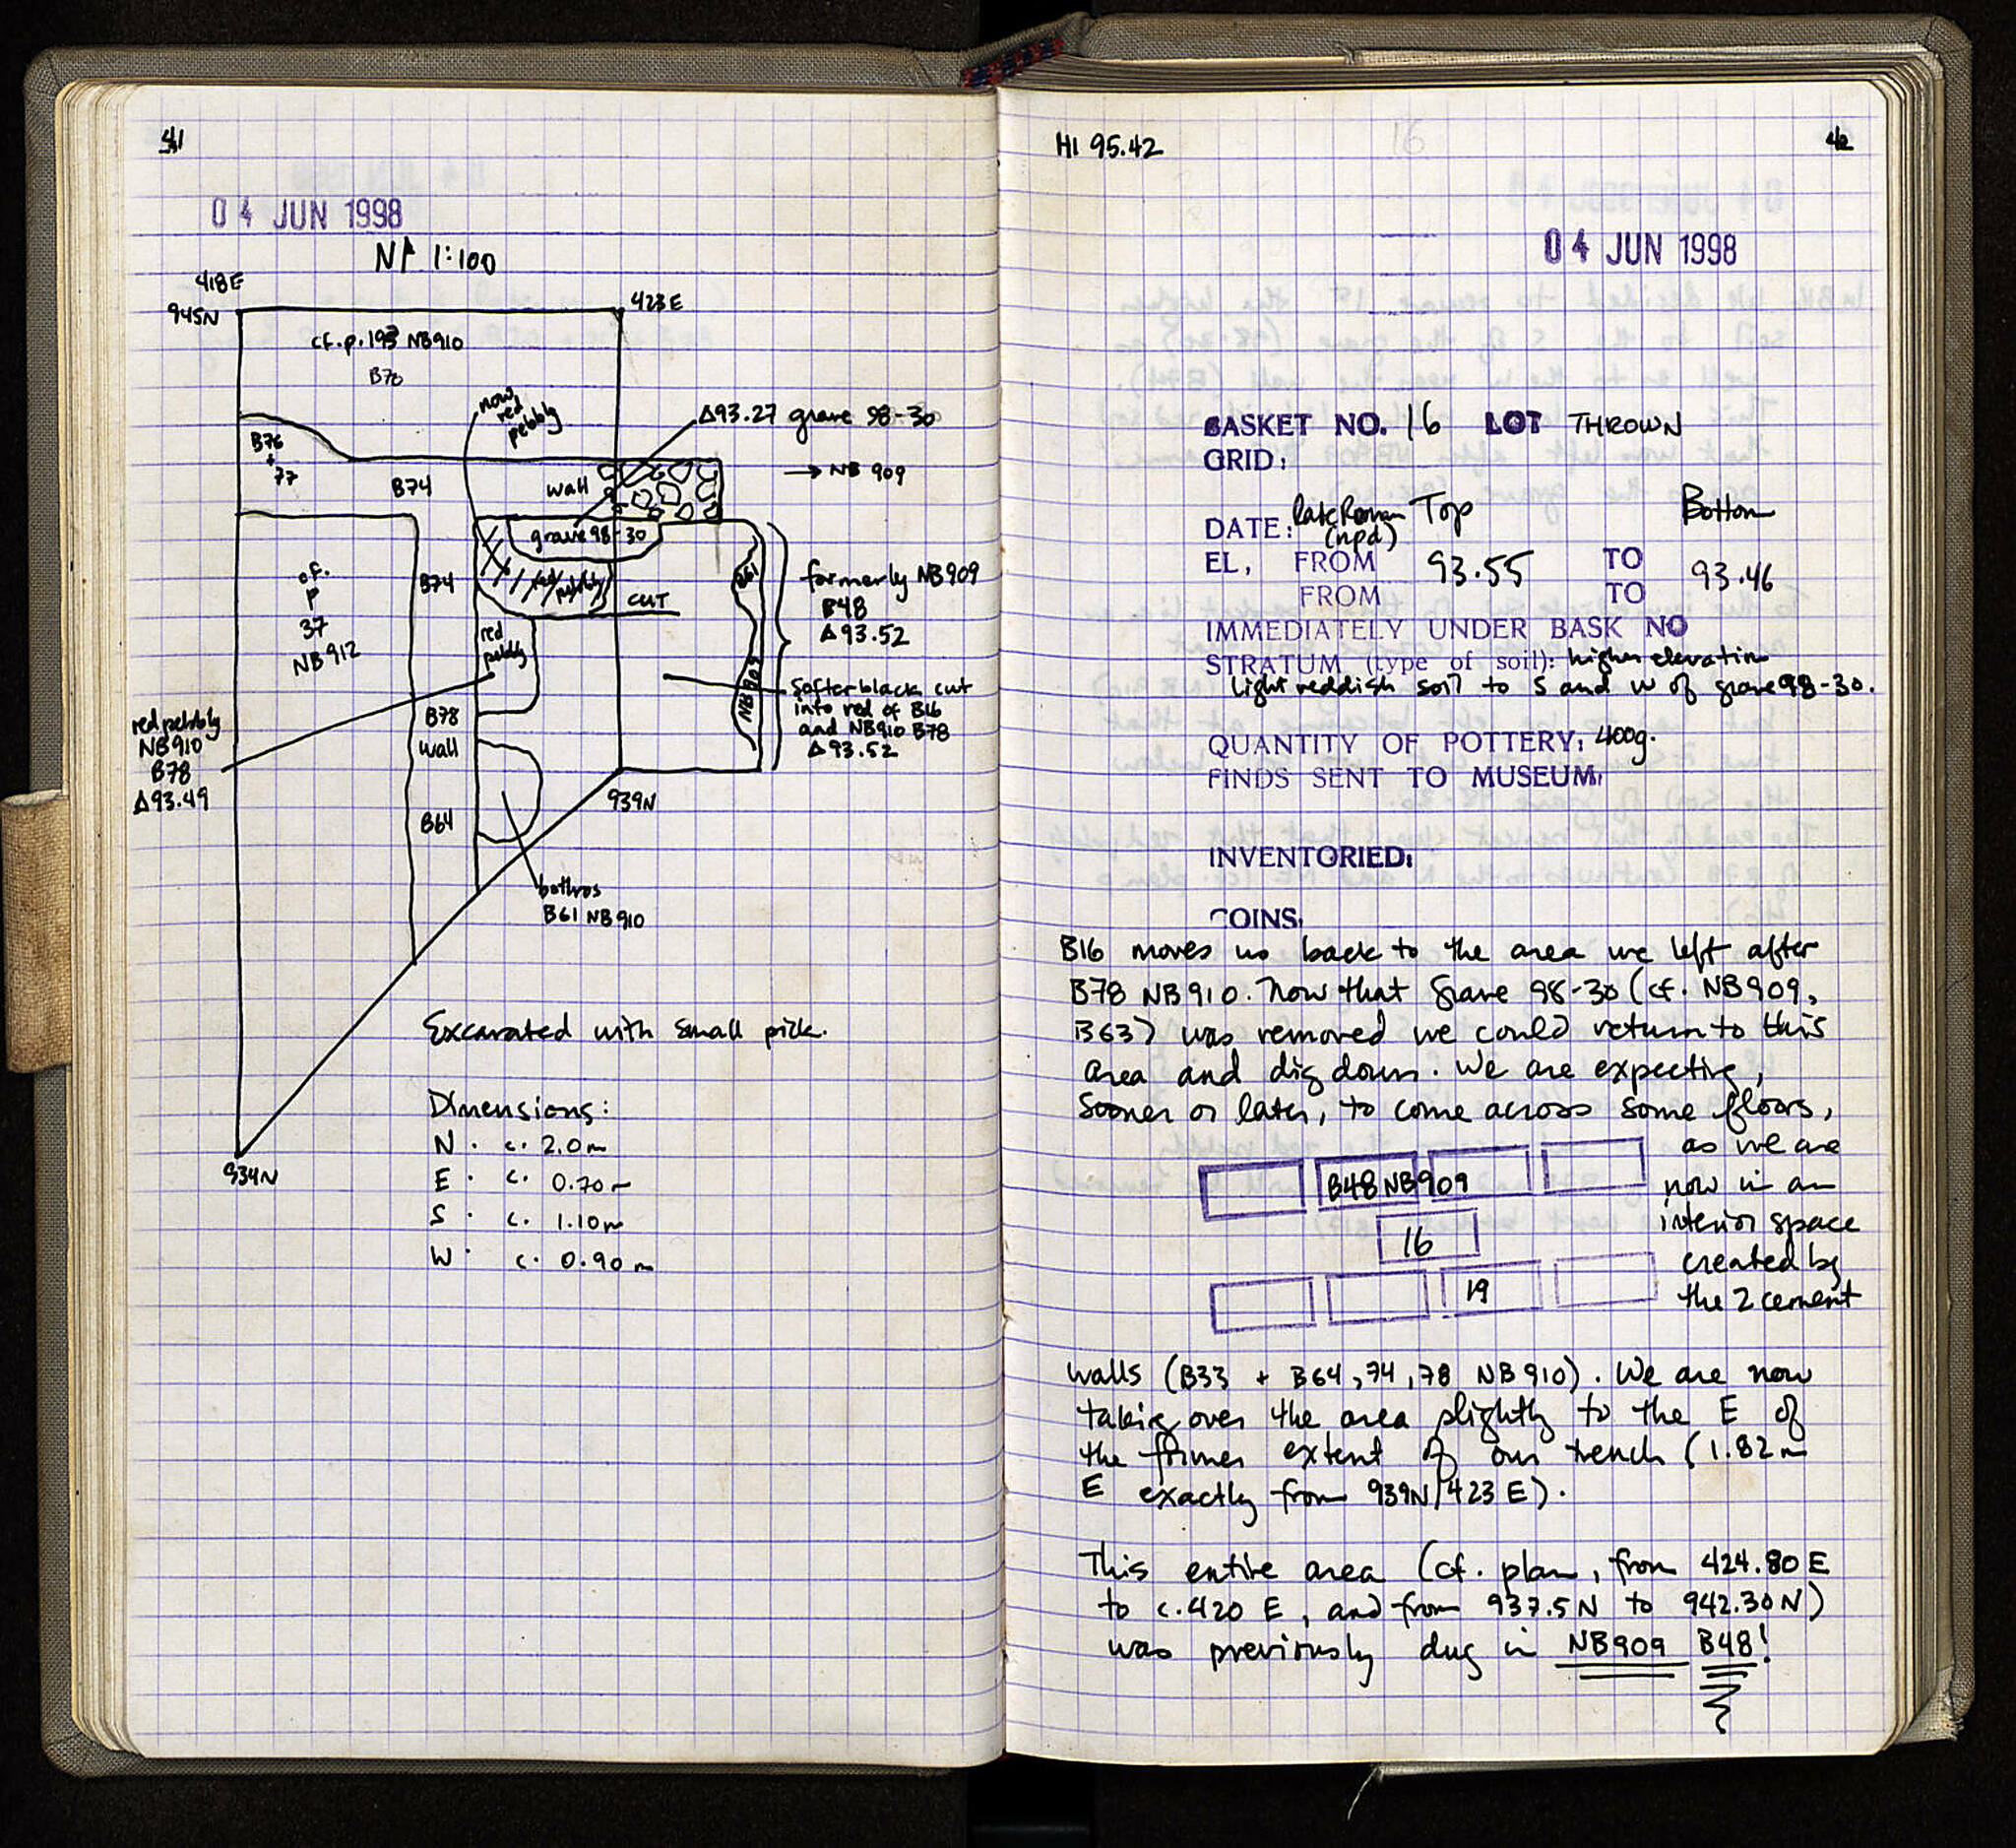 41
04 JUN 1998
N 1:100
418E
945N
423E
cf. p. 193 NB910
B70
now
red
pebbly
Δ93.27 grave 98-30
B76
+
77
B74
wall
→ NB 909
grave 98-30
cf.
p
37
NB912
B74
red
pebbly
CUT
B61
NB909
formerly NB909
B48
Δ93.52
red
pebbly
softer black cut
into red of B16
and NB910 B78
Δ93.52
red pebbly
NB910
B78
Δ93.49
B78
wall
B64
939N
bothros
B61 NB910
934N
Excavated with small pick.
Dimensions:
N. c. 2.0m
E. c. 0.70m
S. c. 1.10m
W. c. 0.90m
H1 95.42
42
16
04 JUN 1998
BASKET NO. 16 LOT THROWN
GRID:
DATE: late Roman (npd) Top Bottom
EL, FROM 93.55 TO 93.46
FROM TO
IMMEDIATELY UNDER BASK NO
STRATUM (type of soil): higher elevation
light reddish soil to S and W of grave 98-30.
QUANTITY OF POTTERY: 400g.
FINDS SENT TO MUSEUM:
INVENTORIED:
COINS:
B16 moves us back to the area we left after
B78 NB910. Now that grave 98-30 (cf. NB909,
B63) was removed we could return to this
area and dig down. We are expecting,
sooner or later, to come across some floors,
as we are
B48 NB909
now in an
interior space
16
created by
19
the 2 cement
walls (B33 + B64, 74, 78 NB910). We are now
taking over the area slightly to the E of
the former extent of our trench (1.82m
E exactly from 939N/423E).
This entire area (cf. plan, from 424.80E
to c.420 E, and from 937.5N to 942.30N)
was previously dug in NB909 B48!